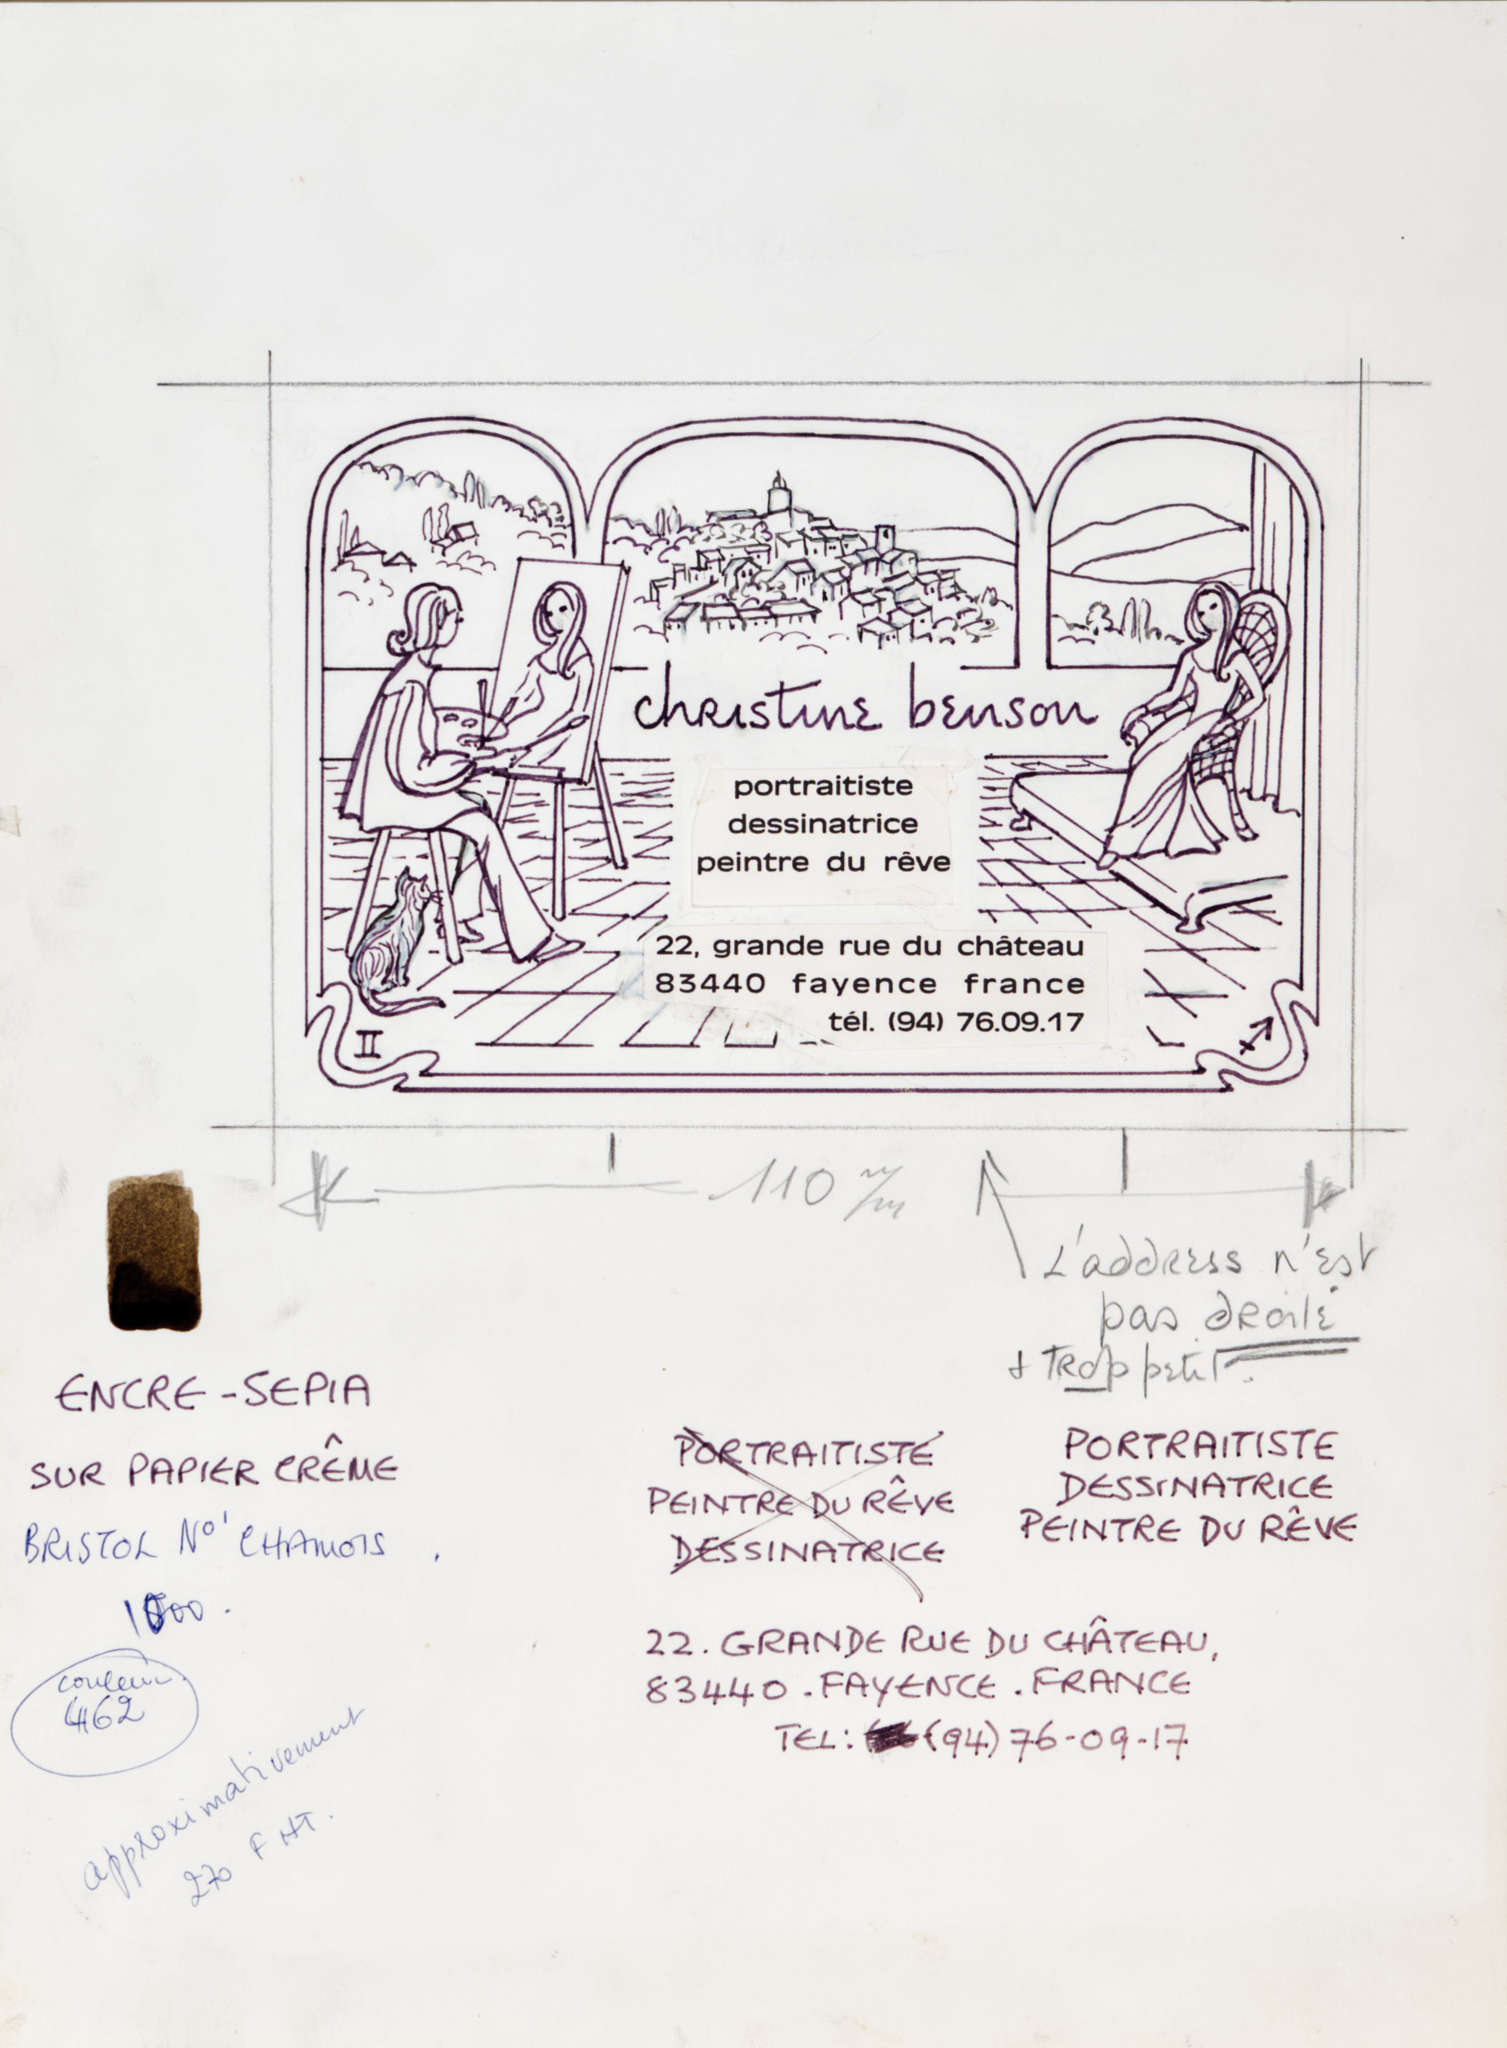 christine benson
portraitiste
dessinatrice
peintre du rêve
22, grande rue du château
83440 fayence france
tél. (94) 76.09.17
II
110 m/m
L'address n'est
pas droite
+ trop petit.
ENCRE - SEPIA
SUR PAPIER CRÊME
BRISTOL No 1 CHAMOIS.
1000.
couleur
462
approximativement
270 F HT.
PORTRAITISTE
PEINTRE DU RÊVE
DESSINATRICE
PORTRAITISTE
DESSINATRICE
PEINTRE DU RÊVE
22. GRANDE RUE DU CHÂTEAU,
83440. FAYENCE. FRANCE
TEL: (94) 76-09-17